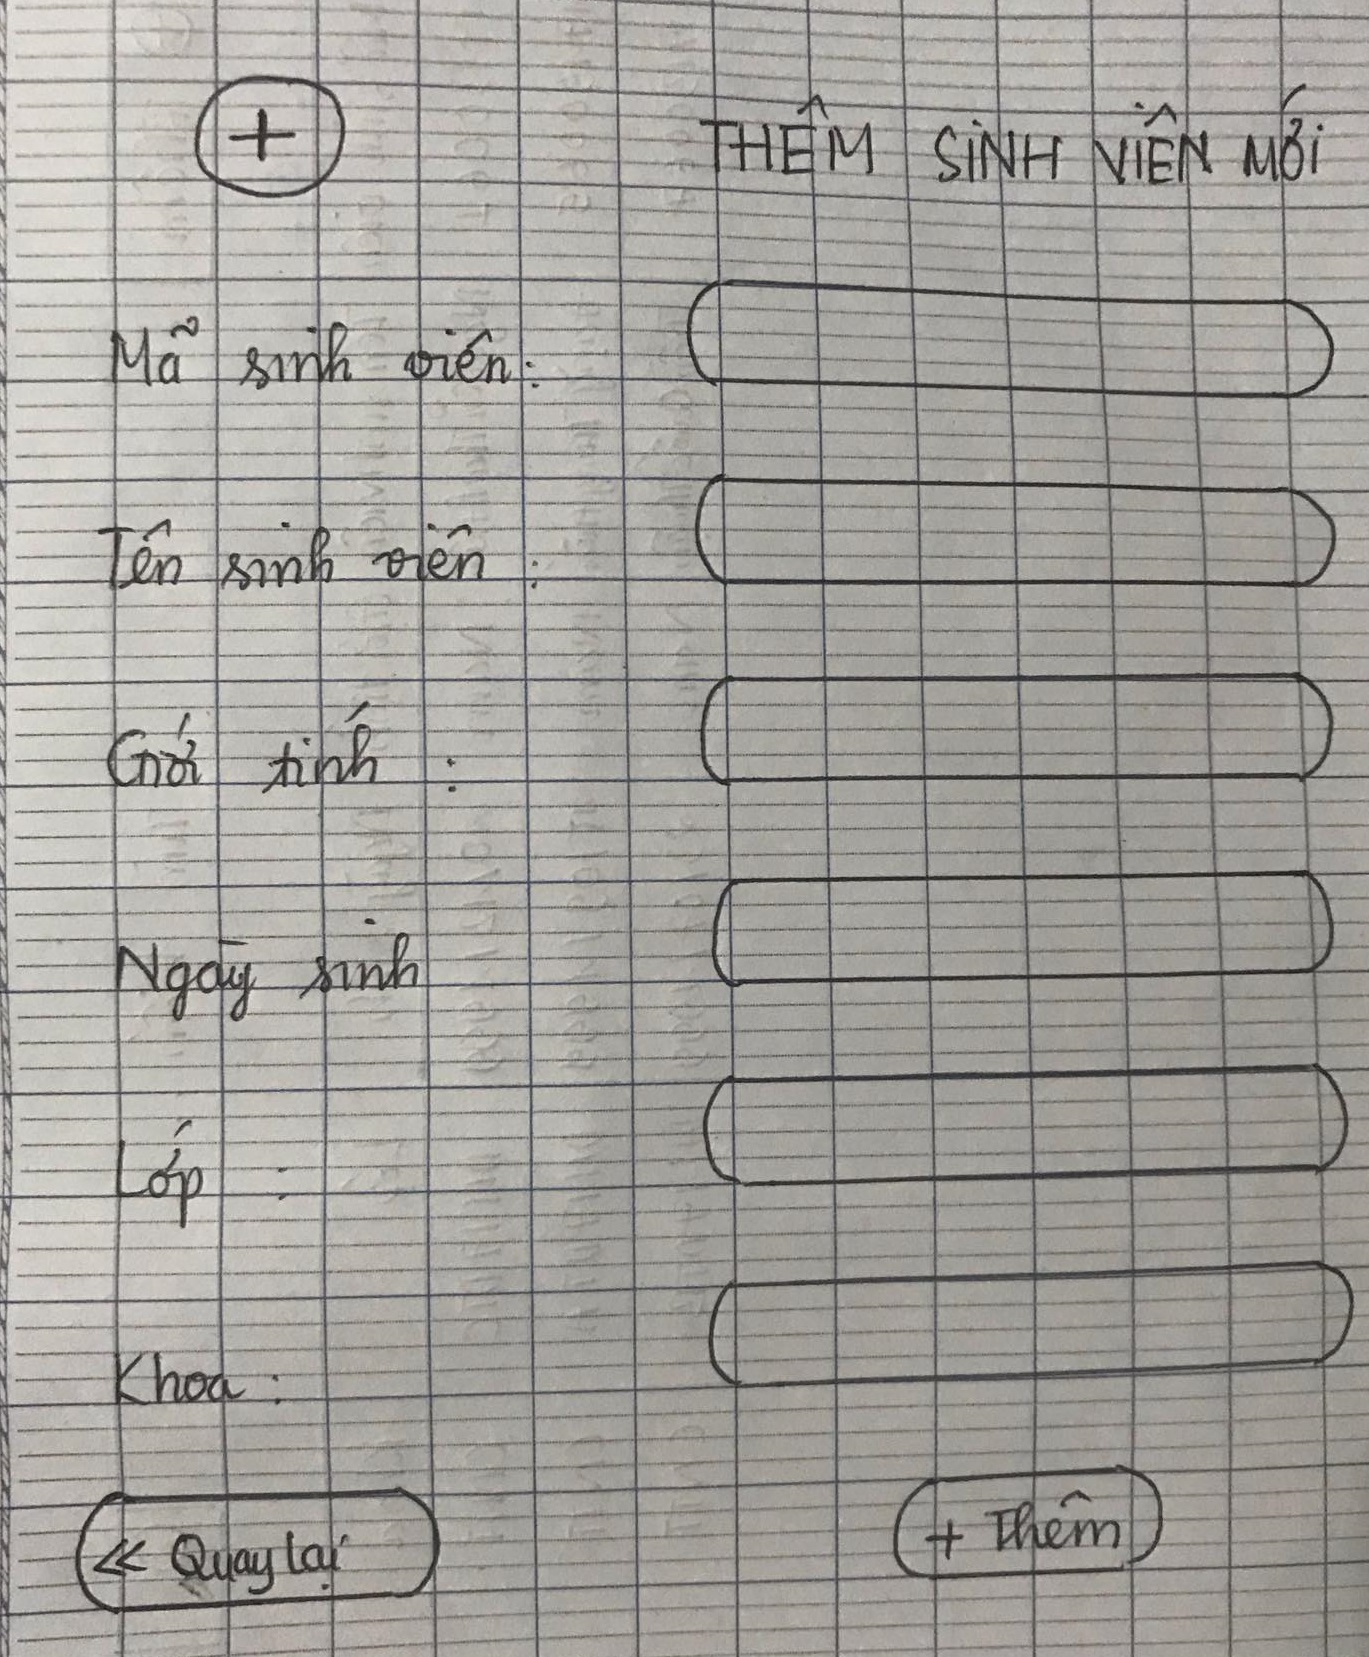 + THÊM SINH VIÊN MỚI
Mã sinh viên:
Tên sinh viên :
Giới tính :
Ngày sinh
Lớp :
Khoa :
<< Quay lại
+ Thêm